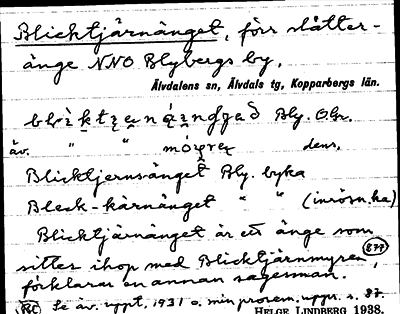 Blicktjärnänget, förr slåtter-
änge NNO Blybergs by,
Älvdalens sn, Älvdals tg, Kopparbergs län.
Bly. Obr.
äv. " " dens.
Blicktjernsänget Bly. byka
Bleck-kärnänget " " (inrösn.ka)
Blicktjärnänget är ett änge som
sitter ihop med Blicktjärnmyren (877),
förklarar en annan sagesman.
Se äv. uppt. 1931 o. min prosem.upps. s. 87.
HELGE LINDBERG 1938.